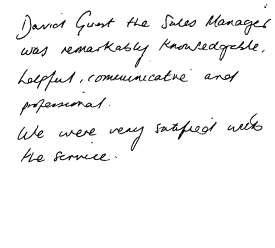 David Guest the Sales Manager
was remarkably knowledgeable,
helpful, communicative and
professional.
We were very satisfied with
the service.